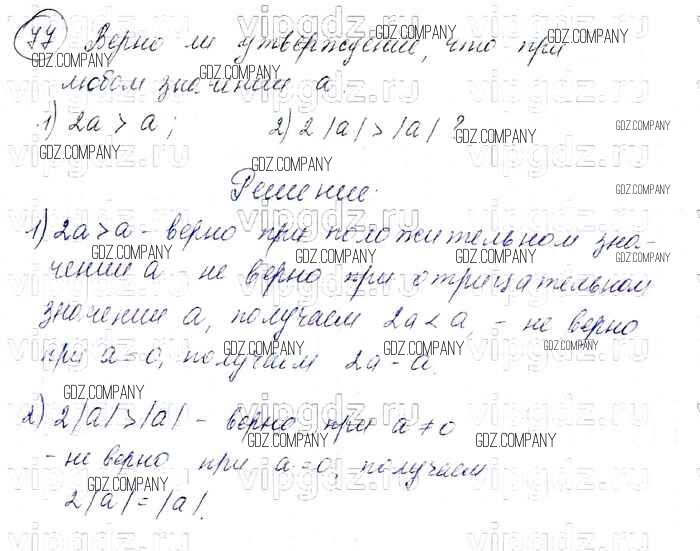 77 Верно ли утверждение, что при
любом значении a.
1) 2a > a ; 2) 2|a| > |a| ?
Решение.
1) 2a > a - верно при положительном зна-
чении a - не верно при отрицательном
значении a, получаем 2a < a, - не верно
при a = 0, получаем 2a = a.
2) 2|a| > |a| - верно при a ≠ 0
- не верно при a = 0, получаем
2|a| = |a|.